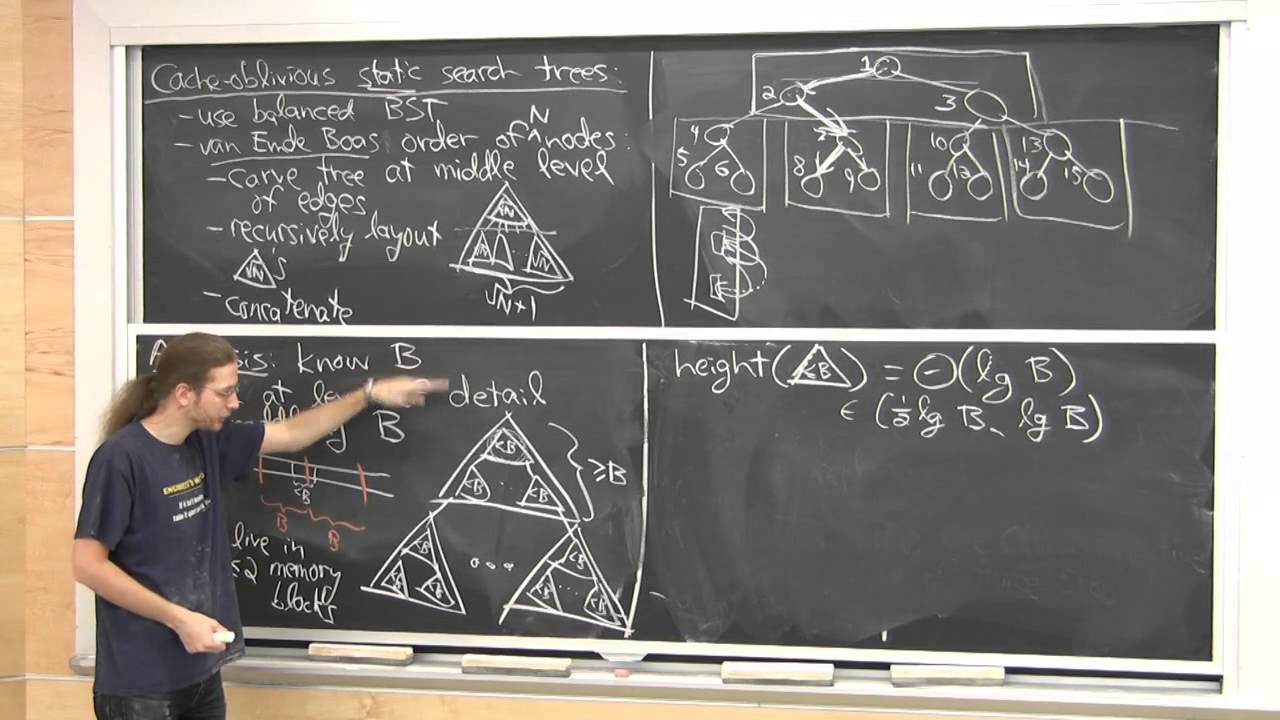 Cache-oblivious static search trees:
- use balanced BST
- van Emde Boas order of N nodes:
- carve tree at middle level
of edges
- recursively layout
√N 's
- concatenate
√N
√N
...
√N
√N+1
1
2
3
4
5
6
7
8
9
10
11
12
13
14
15
know B
at
detail
B
<B
B
B
live in
≤2 memory
blocks
<B
<B
..
<B
≥B
<B
<B
<B
...
<B
<B
...
<B
height( ≤B ) = Θ(lg B)
∈ (½ lg B, lg B)